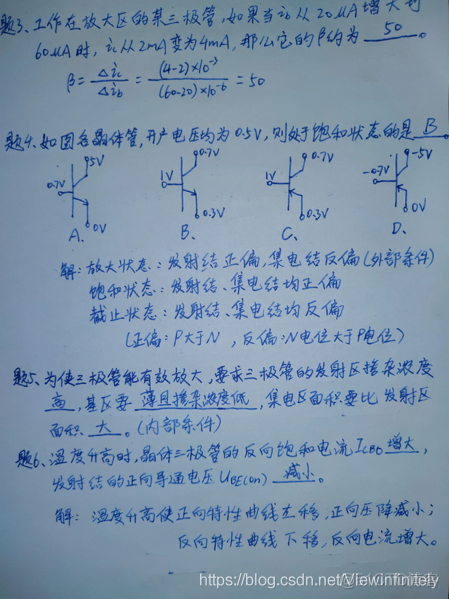 题3、工作在放大区的某三极管,如果当ib从20μA增大到
60μA时,ic从2mA变为4mA,那么它的β约为 50 。
β = Δic/Δib = (4-2)×10⁻³/(60-20)×10⁻⁶ = 50
题4、如图各晶体管,开户电压均为0.5V,则处于饱和状态的是 B
0.7V 5V 0V 1V 0.7V 0.3V 1V 0.7V 0.3V -0.7V -5V 0V
A、 B、 C、 D、
解:放大状态:发射结正偏,集电结反偏(外部条件)
饱和状态:发射结、集电结均正偏
截止状态:发射结、集电结均反偏
(正偏:P大于N,反偏:N电位大于P电位)
题5、为使三极管能有效放大,要求三极管的发射区掺杂浓度
高,基区要 薄且掺杂浓度低,集电区面积要比发射区
面积 大 。(内部条件)
题6、温度升高时,晶体三极管的反向饱和电流ICBO 增大,
发射结的正向导通电压UBE(on) 减小。
解:温度升高使正向特性曲线左移,正向压降减小;
反向特性曲线下移,反向电流增大。
https://blog.csdn.net/Viewinfinitely